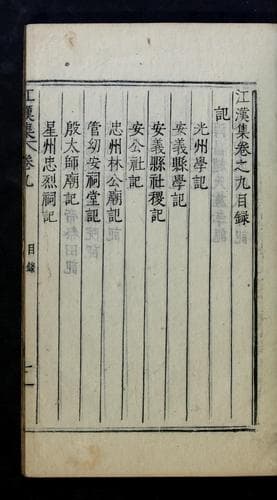 江漢集卷之九目錄
記
光州學記
安義縣學記
安義縣社稷記
安公社記
忠州林公廟記
管幼安祠堂記
殷太師廟記
星州忠烈祠記
江漢集 卷九 目錄 一